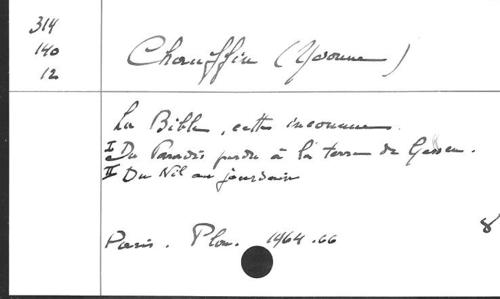 314
140
12
Chauffin (Yvonne)
La Bible, cette inconnue.
I Du Paradis perdu à la terre de Gessen.
II Du Nil au jourdain
8
Paris. Plon. 1964.66